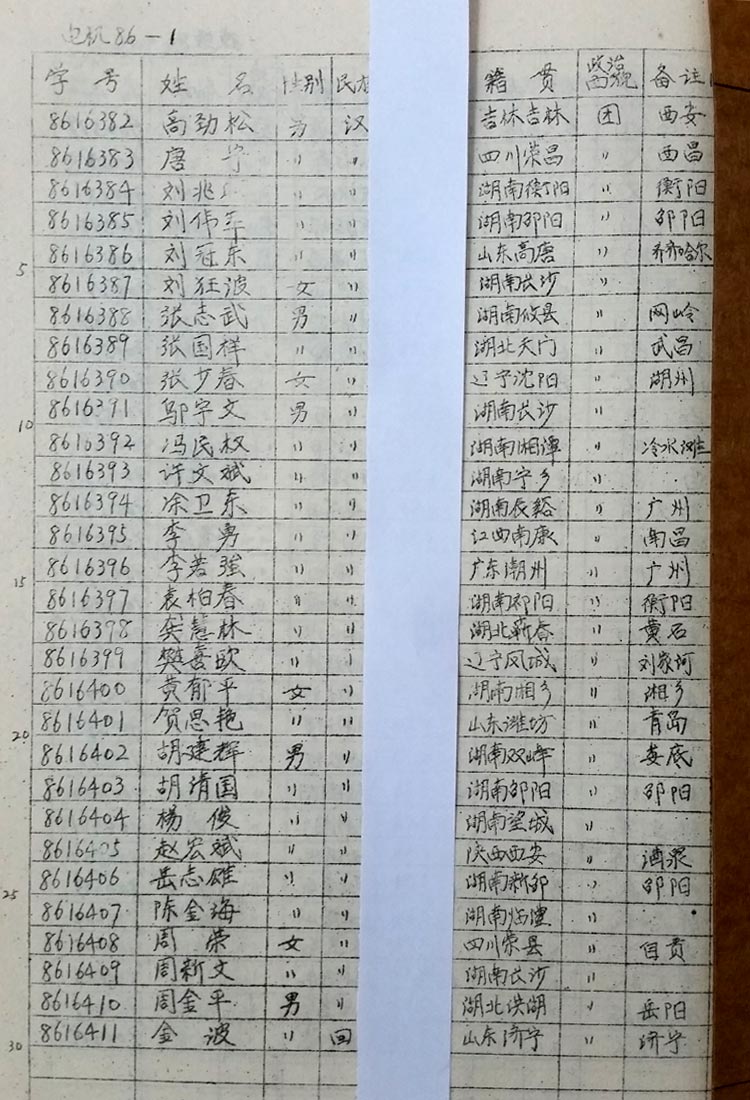 电机86-1
字号 姓名 性别 民 籍贯 政治面貌 备注
8616382 高劲松 男 汉 吉林吉林 团 西安
8616383 唐宇 〃 〃 四川荣昌 〃 西昌
8616384 刘兆 〃 〃 湖南衡阳 〃 衡阳
8616385 刘伟军 〃 〃 湖南邵阳 〃 邵阳
5 8616386 刘冠东 〃 〃 山东高唐 〃 齐齐哈尔
8616387 刘狂波 女 〃 湖南长沙 〃
8616388 张志武 男 〃 湖南攸县 〃 网岭
8616389 张国祥 〃 〃 湖北天门 〃 武昌
8616390 张少春 女 〃 辽宁沈阳 〃 湖州
10 8616391 邬宇文 男 〃 湖南长沙 〃
8616392 冯民权 〃 〃 湖南湘潭 〃 冷水滩
8616393 许文斌 〃 〃 湖南宁乡 〃
8616394 涂卫东 〃 〃 湖南辰谿 〃 广州
8616395 李勇 〃 〃 江西南康 〃 南昌
15 8616396 李若强 〃 〃 广东潮州 〃 广州
8616397 袁柏春 〃 〃 湖南祁阳 〃 衡阳
8616398 龚慧林 〃 〃 湖北蕲春 〃 黄石
8616399 樊喜欧 〃 〃 辽宁凤城 〃 刘家河
8616400 黄郁平 女 〃 湖南湘乡 〃 湘乡
20 8616401 贺思艳 〃 〃 山东潍坊 〃 青岛
8616402 胡建辉 男 〃 湖南双峰 〃 娄底
8616403 胡清国 〃 〃 湖南邵阳 〃 邵阳
8616404 杨俊 〃 〃 湖南望城 〃
8616405 赵宏斌 〃 〃 陕西西安 〃 酒泉
25 8616406 岳志雄 〃 〃 湖南新邵 〃 邵阳
8616407 陈金海 〃 〃 湖南临澧 〃
8616408 周荣 女 〃 四川荣县 〃 自贡
8616409 周新文 〃 〃 湖南长沙 〃
8616410 周金平 男 〃 湖北洪湖 〃 岳阳
30 8616411 金波 〃 回 山东济宁 〃 济宁